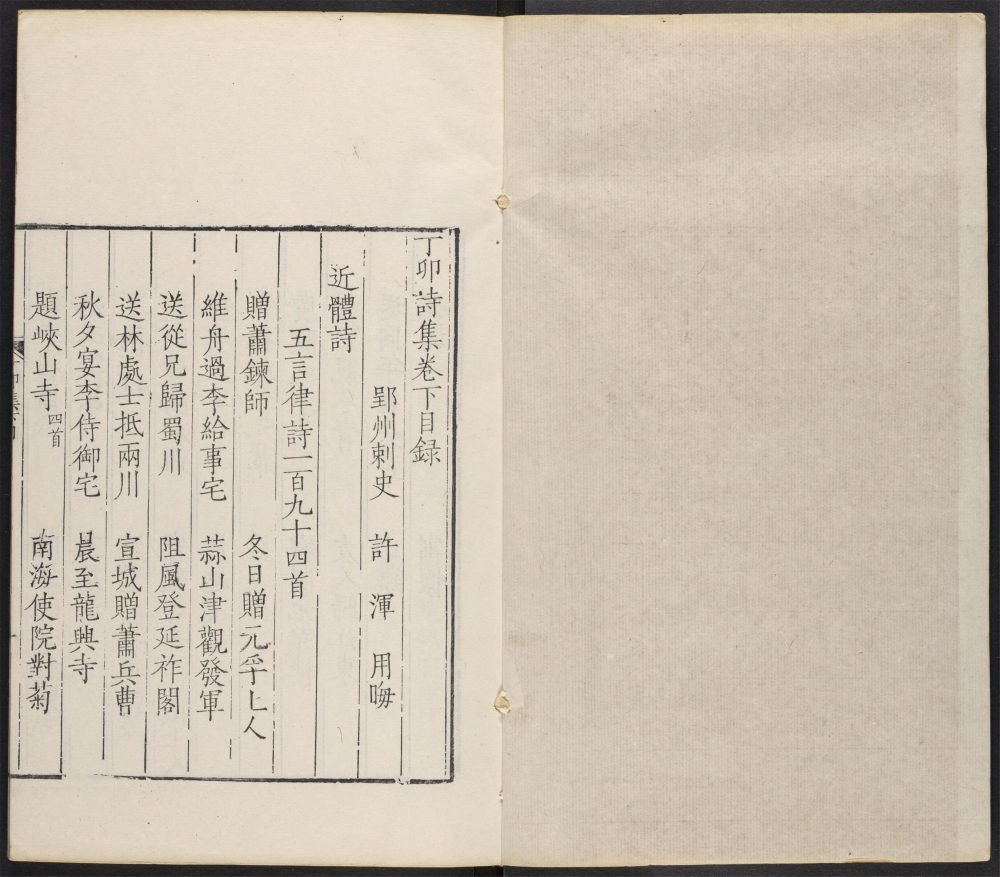 丁卯詩集卷下目録
郢州刺史 許渾 用晦
近體詩
五言律詩一百九十四首
贈蕭鍊師 冬日贈元孚上人
維舟過李給事宅 蒜山津觀發軍
送從兄歸蜀川 阻風登延祚閣
送林處士抵兩川 宣城贈蕭兵曹
秋夕宴李侍御宅 晨至龍興寺
題峽山寺四首 南海使院對菊